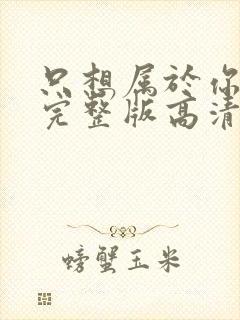 只想属於你
完整版高清
螃蟹玉米